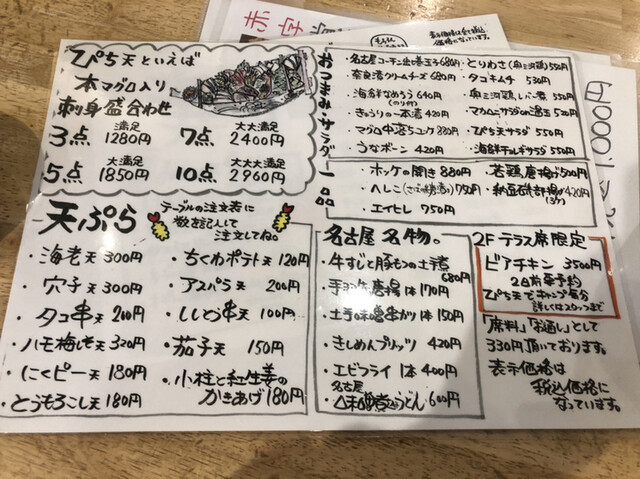 ぴち天といえば
本マグロ入り
刺身盛合わせ
満足
3点 1280円
大大満足
7点 2400円
大満足
5点 1850円
大大大満足
10点 2960円
天ぷら
テーブルの注文表に
数を記入して
注文してね。
・海老天 300円
・穴子天 300円
・タコ串天 200円
・ハモ梅しそ天 320円
・にくピー天 180円
・とうもろこし天 180円
・ちくわポテト天 120円
・アスパラ天 200円
・ししとう串天 100円
・茄子天 150円
・小柱と紅生姜の
かきあげ 180円
おつまみ・サラダ・一品
・名古屋コーチン出し巻玉子 680円
・奈良漬クリームチーズ 680円
・海鮮なめろう 640円
(のり付)
・きゅうりの一本漬 420円
・マグロ中落ちユッケ 880円
・うなポーン 420円
・とりわさ(奥三河鶏) 550円
・タコキムチ 530円
・奥三河鶏レバー煮 550円
・マカロニサラダon温玉 520円
・ぴち天サラダ 550円
・海鮮チョレギサラダ 550円
・ホッケの開き 880円
・へしこ(さば糠漬け) 750円
・エイヒレ 750円
・若鶏唐揚げ 500円
・納豆磯部揚げ 420円
名古屋名物。
・牛すじと豚モツの土手煮
680円
・手羽先唐揚 1本 170円
・土手の味噌串カツ 1本 150円
・きしめんプリッツ 420円
・エビフライ 1本 400円
名古屋
・味噌煮込うどん 600円
2Fテラス席限定
ビアチキン 3500円
2日前要予約
ぴち天でキャンプ気分
詳しくはスタッフまで
「席料」「お通し」として
330円頂いております。
表示価格は
税込価格に
なっています。